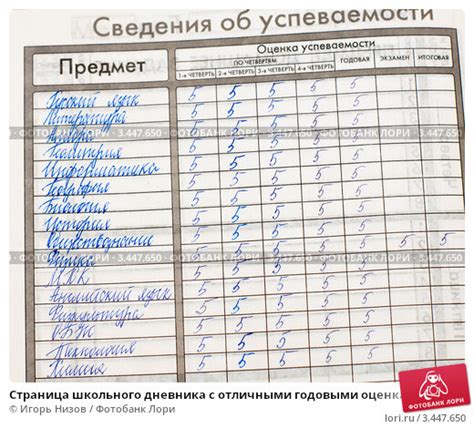 Сведения об успеваемости
Предмет
Оценка успеваемости
ПО ЧЕТВЕРТЯМ
ГОДОВАЯ ЭКЗАМЕН ИТОГОВАЯ
1-я ЧЕТВЕРТЬ 2-я ЧЕТВЕРТЬ 3-я ЧЕТВЕРТЬ 4-я ЧЕТВЕРТЬ
Русский язык 5 5 5 5 5
Литература 5 5 5 5 5
Алгебра 5 5 5 5 5
Геометрия 5 5 5 5 5
Информатика 5 5 5 5 5
География 5 5 5 5 5
Биология 5 5 5 5 5
История 5 5 5 5 5
Обществознание 5 5 5 5 5 5 5
Физика 5 5 5 5 5
МХК 5 5 5 5 5
Английский язык 5 5 5 5 5
Физкультура 5 5 5 5 5
ОБЖ 5 5 5 5 5
Технология 5 5 5 5 5
Химия 5 5 5 5 5
ФОТОБАНК ЛОРИ - 3.447.650
ФОТОБАНК ЛОРИ - 3.447.650
Страница школьного дневника с отличными годовыми оценка
© Игорь Низов / Фотобанк Лори
ФОТОБАНК ЛОРИ
lori.ru / 3.447.650